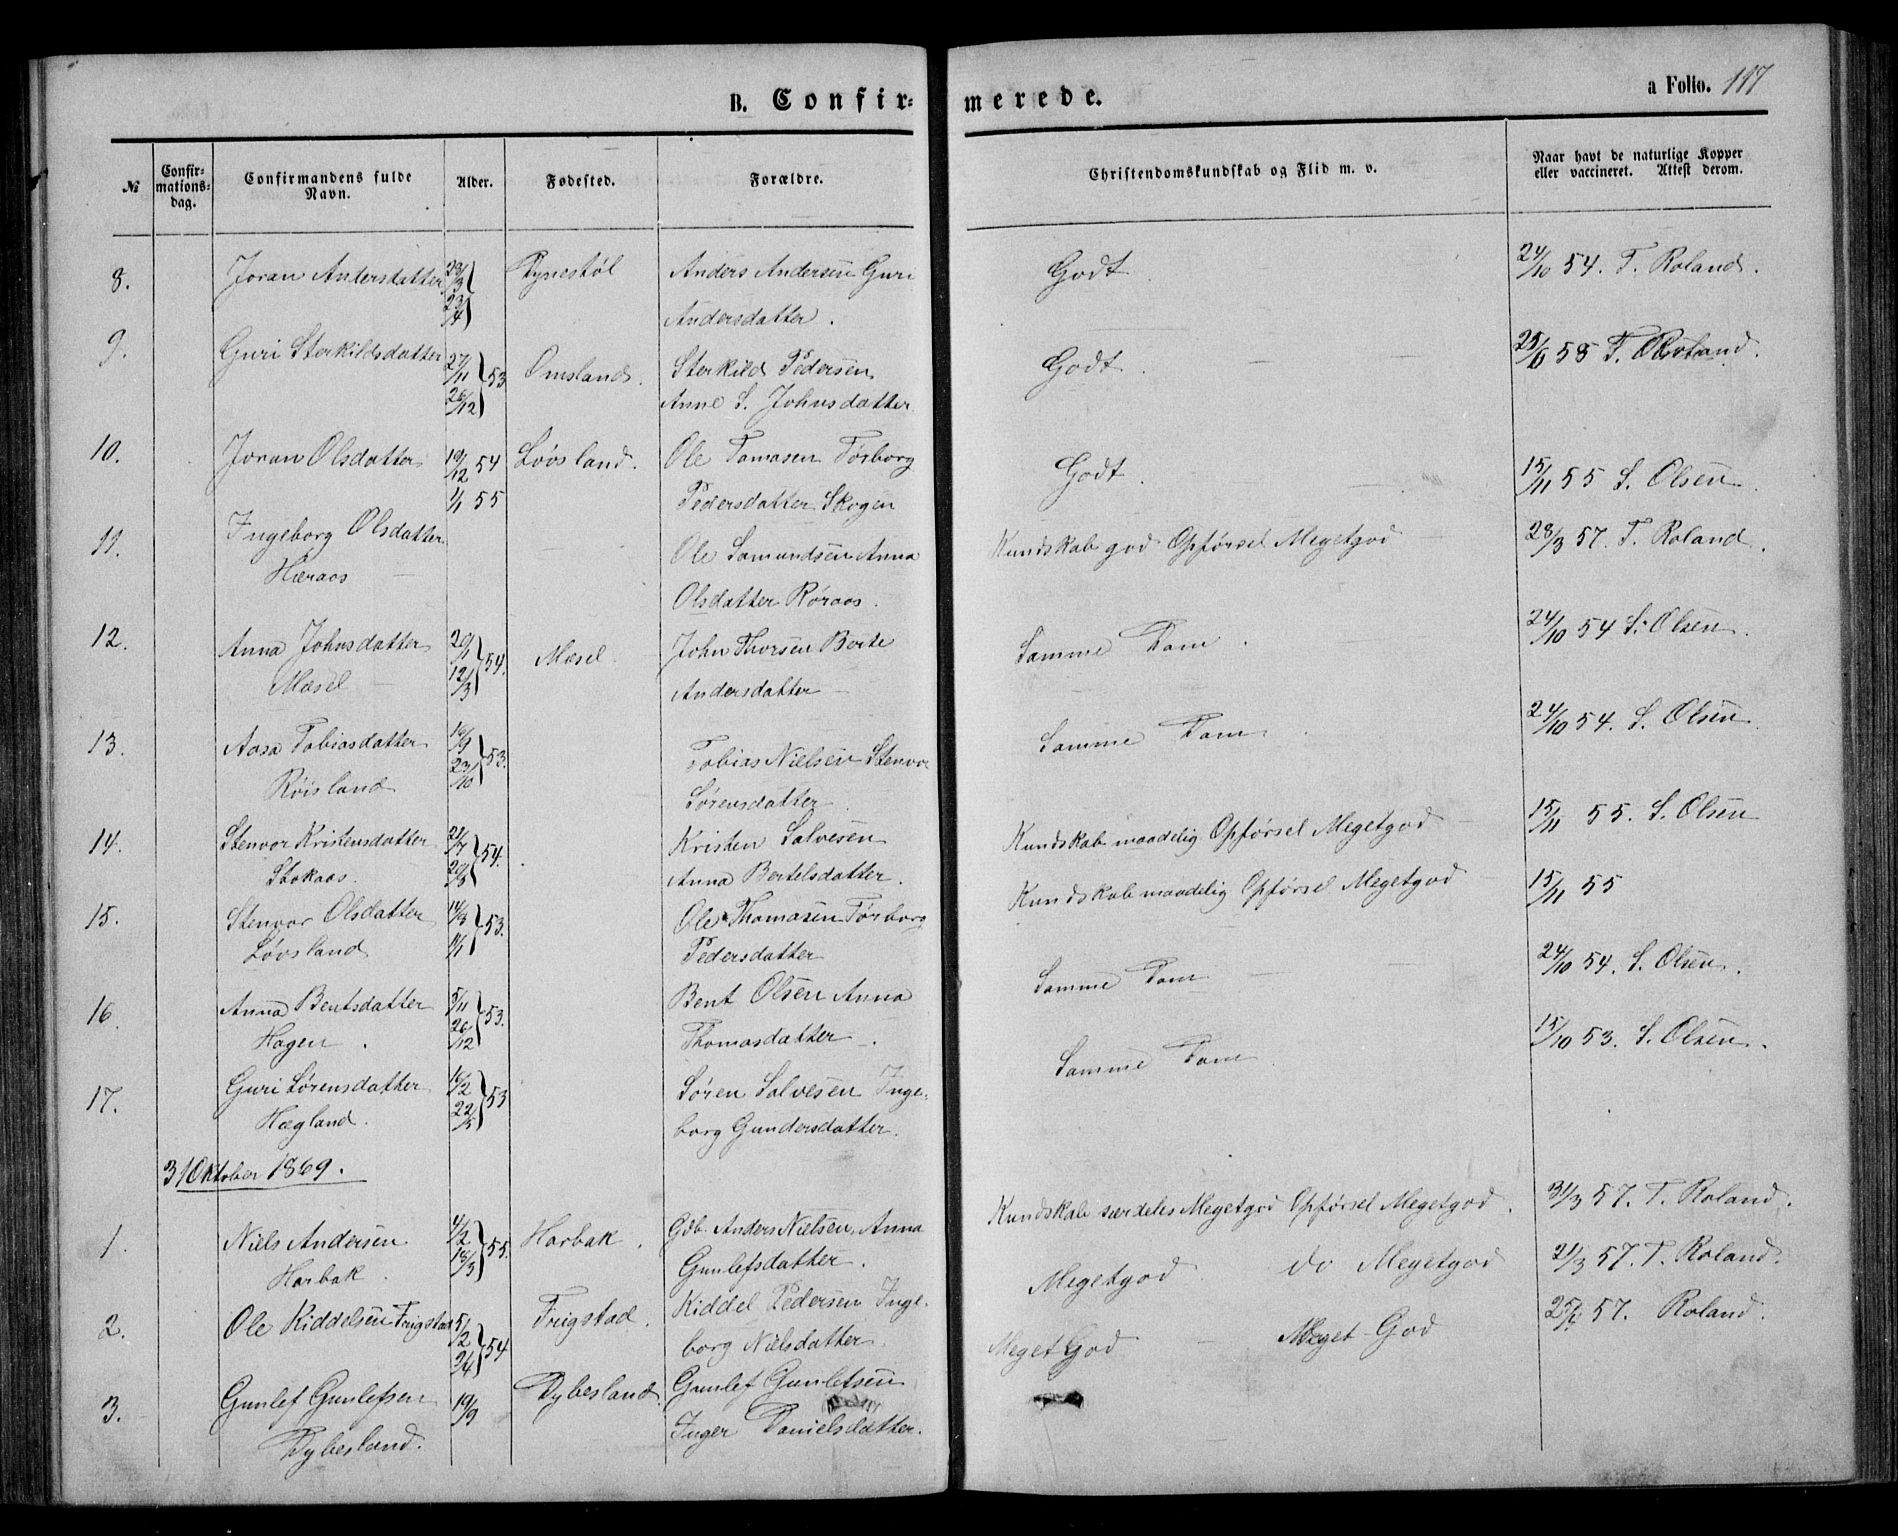 B. Confir-
merede.
a Folio. 117
№
Confir-
mations-
dag.
Confirmandens fulde
Navn.
Alder.
Fødested.
Forældre.
Christendomskundskab og Flid m. v.
Naar havt de naturlige Kopper
eller vaccineret. Attest derom.
8. Joran Andersdatter 23/3 Dynestøl Anders Andersen Guri Godt 24/10 54. T. Roland.
23/4 Andersdatter.
9. Guri Sterkildsdatter 27/11 53 Omsland. Sterkild Pedersen Godt 58 T. Roland.
26/12 Anne S. Johnsdatter
10. Joran Olsdatter 19/12 54 Løvsland. Ole Tomasen Tørborg Godt 15/11 55 S. Olsen
1/1 55 Pedersdatter Skogen
11. Ingeborg Olsdatter Ole Samundsen Anna Kundskab god Opførsel Megetgod 28/3 57. T. Roland.
Hæraas Olsdatter Røraas.
12. Anna Johnsdatter 20/1 54. Mæsel John Thorsen Borte Samme Dom. 24/10 54 S. Olsen.
Mæsel 12/3 Andersdatter
13. Aasa Tobiasdatter 53. Tobias Nielsen Stenvor Samme Dom 24/10 54. S. Olsen
Røisland 23/10 Sørensdatter
14. Stenvor Kristensdatter 54. Kristen Salvesen Kundskab maadelig Opførsel Megetgod 15/11 55. S. Olsen
Stokaas. Anna Bertelsdatter.
15. Stenvor Olsdatter 14/3 53. Ole Thomasen Tørborg Kundskab maadelig Opførsel Megetgod 15/11 55
Løvsland Pedersdatter
16. Anna Bentsdatter 5/11 53. Bent Olsen Anna Samme Dom 24/10 54. S. Olsen.
Hagen. 26/12 Thomasdatter.
17. Guri Sørensdatter 16/2 53 Søren Salvesen Inge- Samme Dom 15/10 53. S. Olsen.
Hægland. 22/5 borg Gundersdatter.
31 Oktober 1869.
1. Niels Andersen 4/2 55. Harbak. Gdb. Anders Nielsen Anna Kundskab særdeles Megetgod Opførsel Megetgod. 31/3 57. T. Roland.
Harbak. 18/3 Gunlefsdatter.
2. Ole Kiddelsen Frigstad 5/2 54 Frigstad. Kiddel Pedersen Inge- Megetgod do Megetgod 21/3 57. T. Roland.
2/4 borg Nielsdatter.
3. Gunlef Gunlefsen 19/9 Dybesland Gunlef Gunlefsen Meget God Meget God 57. Roland.
Dybesland. Inger Danielsdatter.